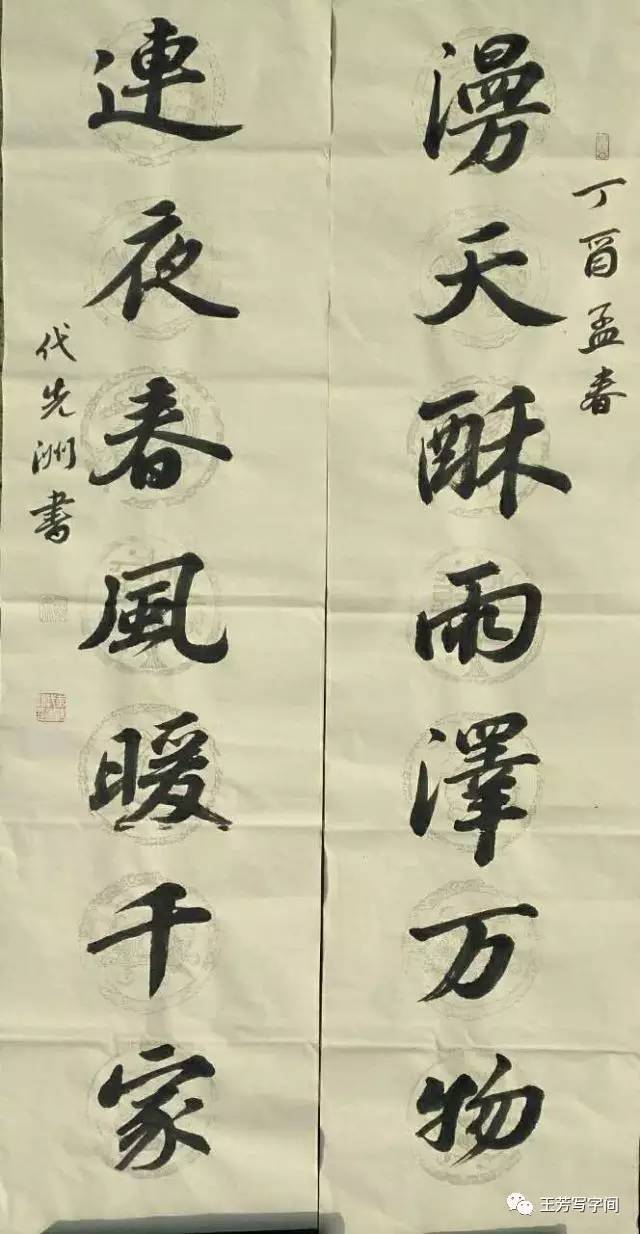 丁酉孟春
漫天酥雨澤万物
連夜春風暖千家
代先洲書
王芳写字间